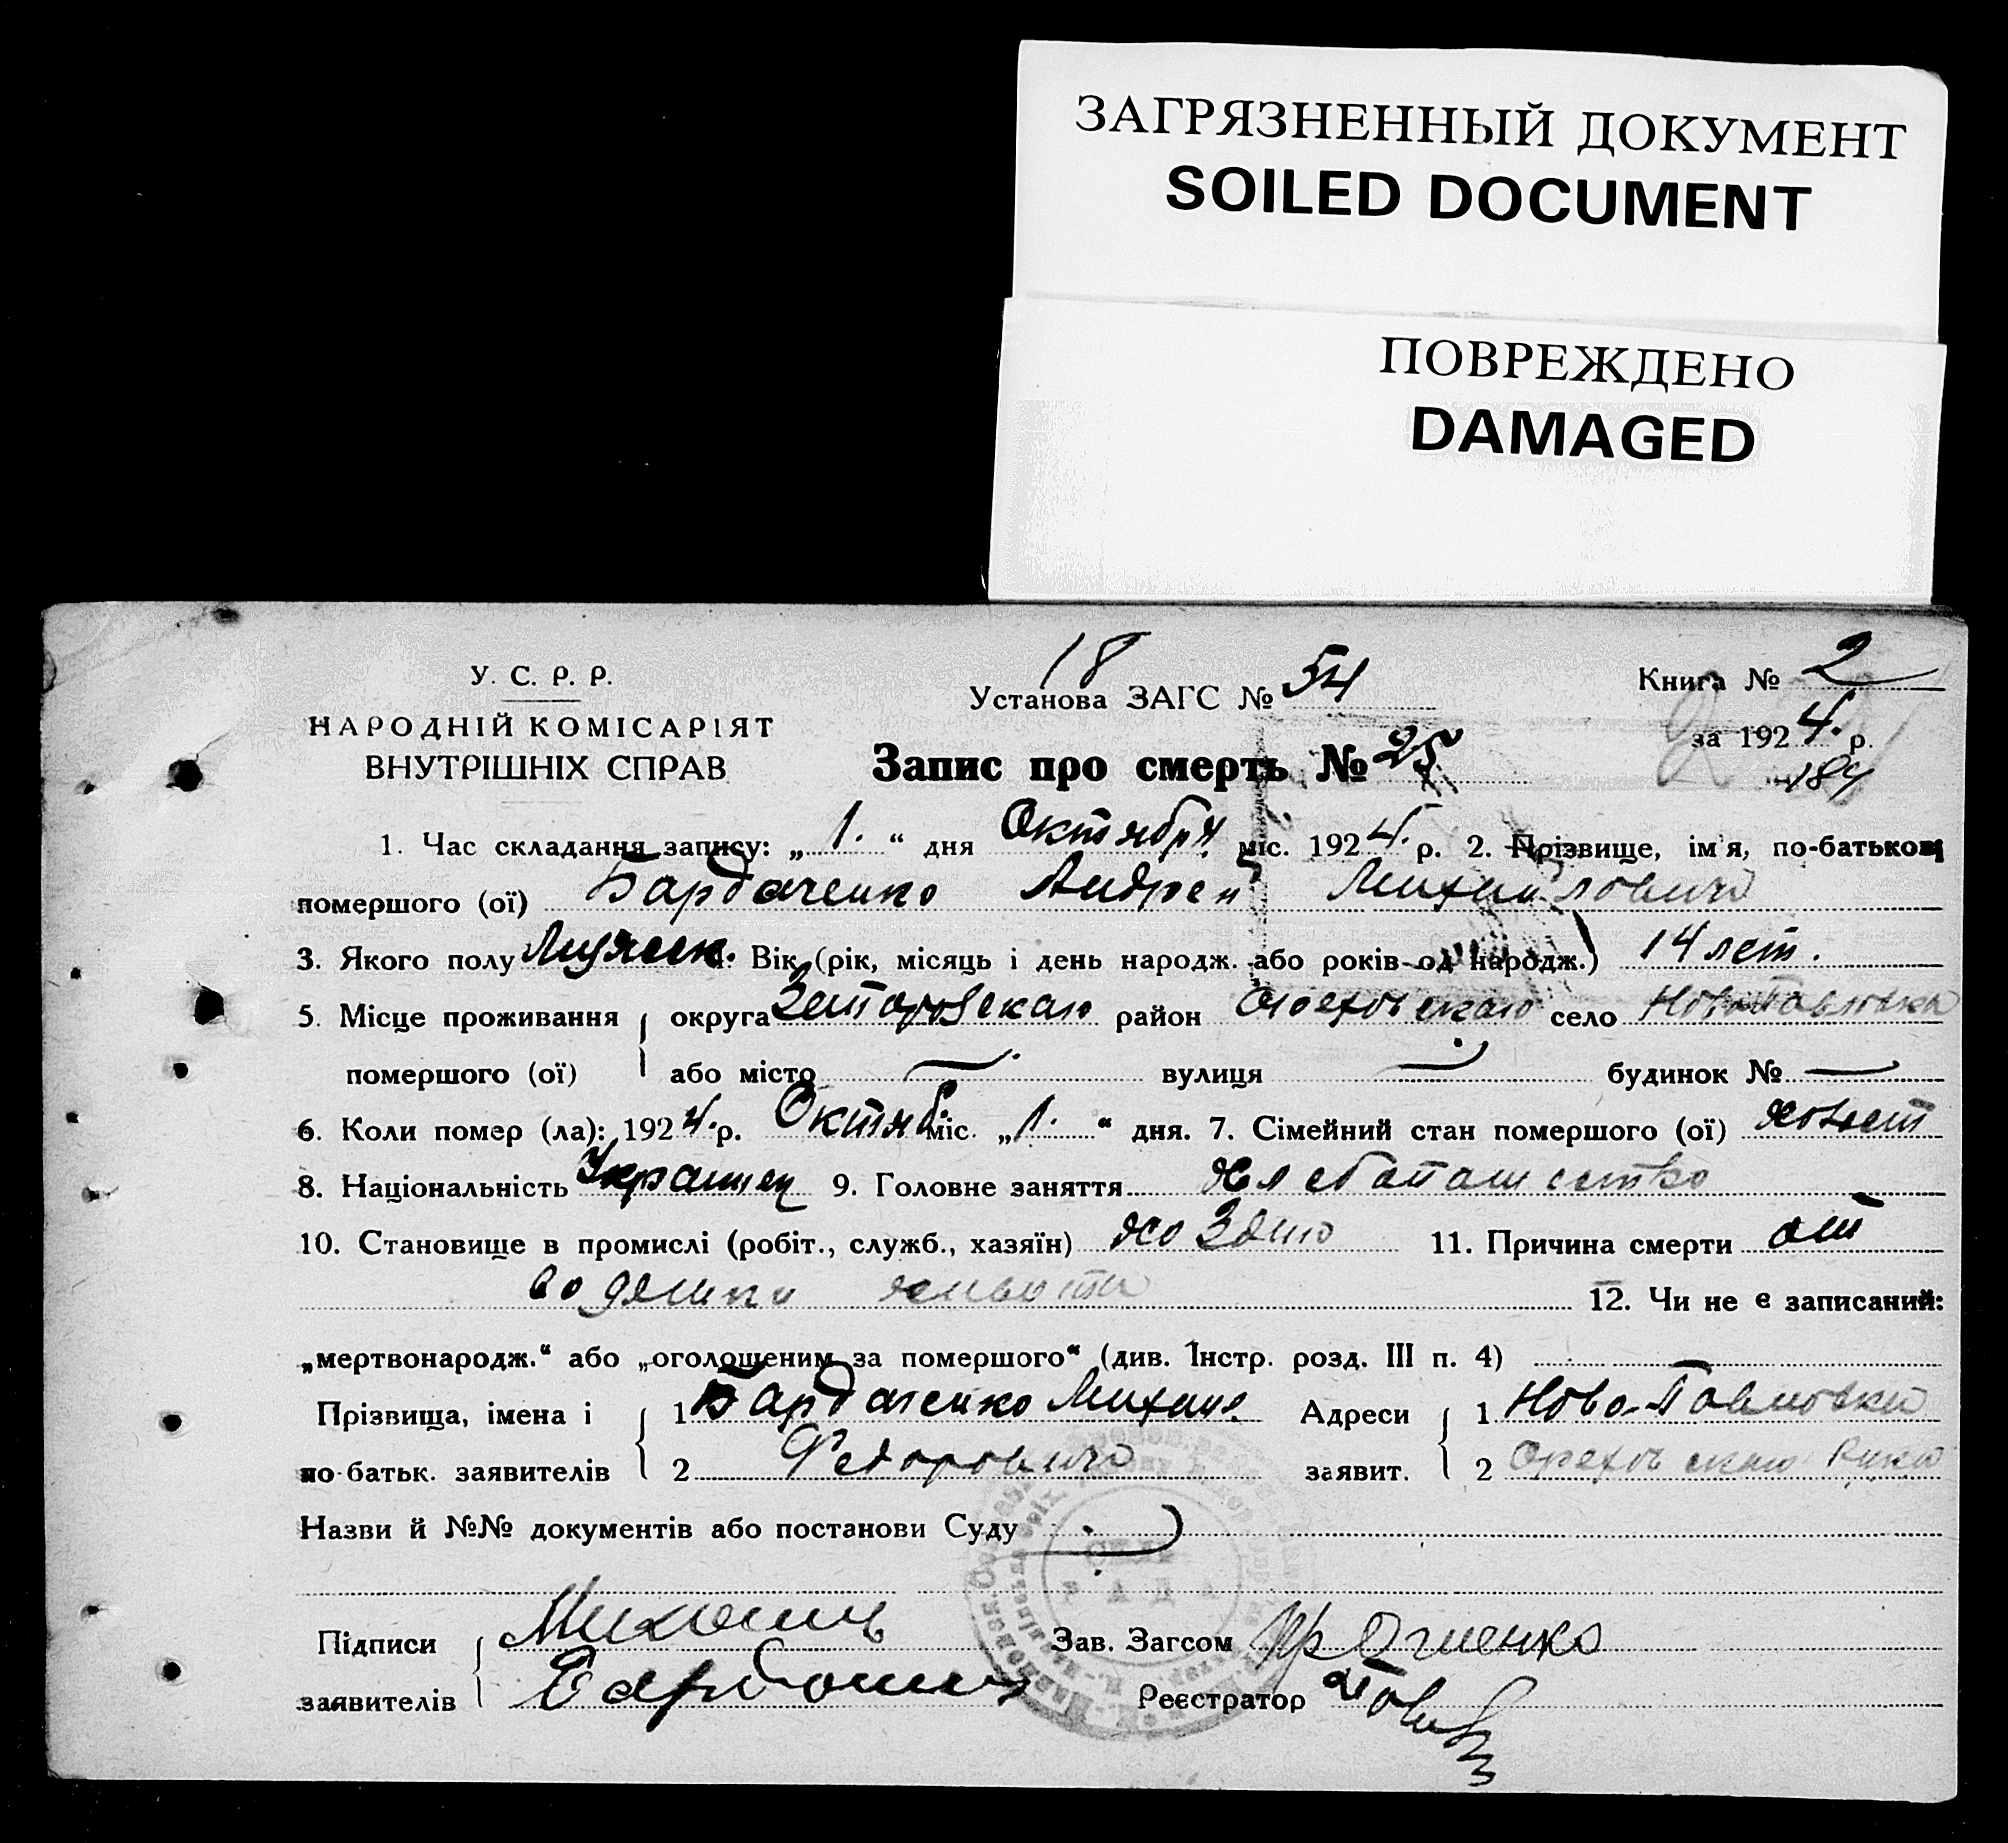 ЗАГРЯЗНЕННЫЙ ДОКУМЕНТ
SOILED DOCUMENT
ПОВРЕЖДЕНО
DAMAGED
У. С. Р. Р.
НАРОДНІЙ КОМІСАРІЯТ
ВНУТРІШНІХ СПРАВ
18
Установа ЗАГС № 54
Книга № 2
за 1924. р.
184
Запис про смерть № 25
1. Час складання запису: „1.“ дня Октября міс. 1924. р. 2. Прізвище, ім'я, по-батькові
помершого (ої) Бардаченко Андрей Михайлович
3. Якого полу Мужеск. 4. Вік (рік, місяць і день народж. або років од народж.) 14 лет.
5. Місце проживання округа район Ореховскаго село Ново Павловка
помершого (ої) або місто — вулиця — будинок № —
6. Коли помер (ла): 1924. р. Октяб. міс. „1.“ дня. 7. Сімейний стан помершого (ої) холост
8. Національність Украинец 9. Головне заняття Хлебопашество
10. Становище в промислі (робіт., служб., хазяїн) 11. Причина смерти от
водянки живота 12. Чи не є записаний:
„мертвонародж.“ або „оголошеним за помершого“ (див. Інстр. розд. III п. 4)
Прізвища, імена і 1 Бардаченко Михаил Адреси 1 Ново-Павловка
по батьк. заявителів 2 Федорович заявит. 2 Ореховскаго
Назви й №№ документів або постанови Суду
Підписи Зав. Загсом
заявителів Реєстратор
РАДА